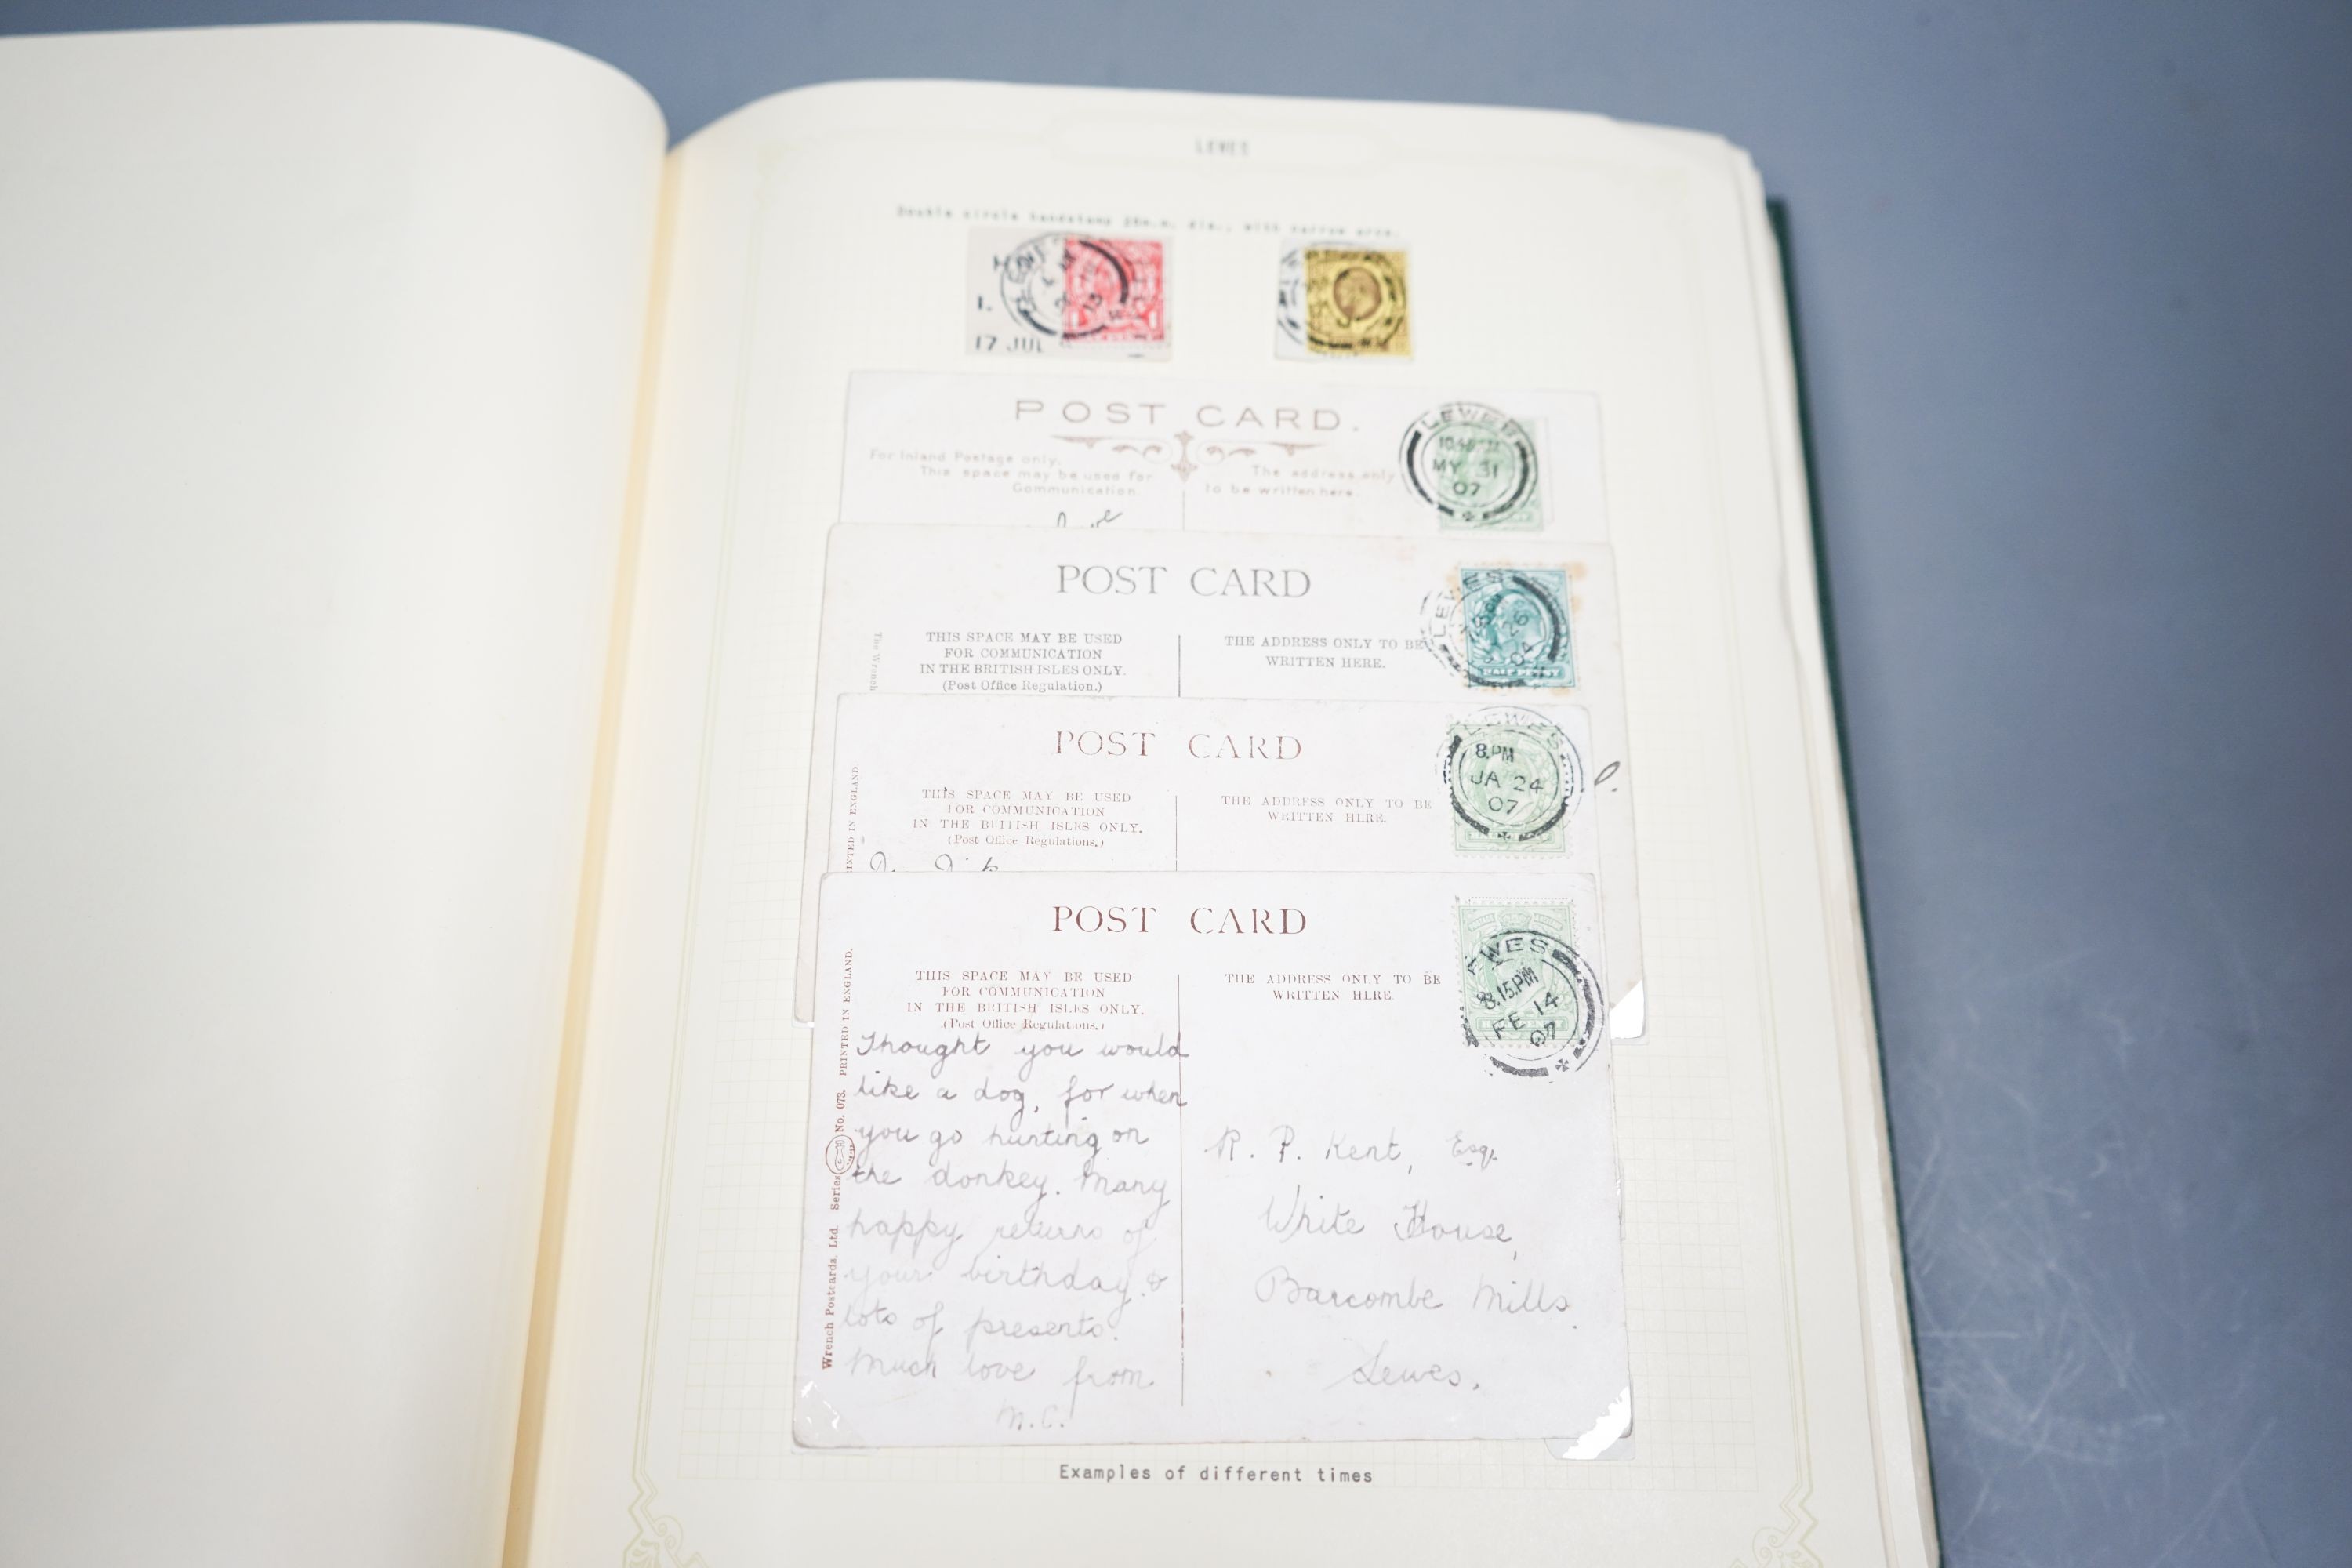 LEWES
Double circle handstamp 28m.m. dia., with narrow arcs.
I.
17 JUL
POST CARD.
For Inland Postage only.
This space may be used for
Communication.
The address only
to be written here.
LEWES
10.45 PM
MY 31
07
love
POST CARD
THIS SPACE MAY BE USED
FOR COMMUNICATION
IN THE BRITISH ISLES ONLY.
(Post Office Regulation.)
THE ADDRESS ONLY TO BE
WRITTEN HERE.
The Wrench
LEWES
26
04
HALF PENNY
POST CARD
THIS SPACE MAY BE USED
FOR COMMUNICATION
IN THE BRITISH ISLES ONLY.
(Post Office Regulations.)
THE ADDRESS ONLY TO BE
WRITTEN HERE.
PRINTED IN ENGLAND.
LEWES
8.PM
JA 24
07
POST CARD
THIS SPACE MAY BE USED
FOR COMMUNICATION
IN THE BRITISH ISLES ONLY.
(Post Office Regulations.)
THE ADDRESS ONLY TO BE
WRITTEN HERE.
EWES
8.15.PM
FE 14
07
Wrench Postcards, Ltd. Series No. 073. PRINTED IN ENGLAND.
Thought you would
like a dog, for when
you go hunting on
the donkey. Many
happy returns of
your birthday &
lots of presents.
Much love from
M.C.
R. P. Kent, Esq.
White House,
Barcombe Mills.
Lewes.
Examples of different times